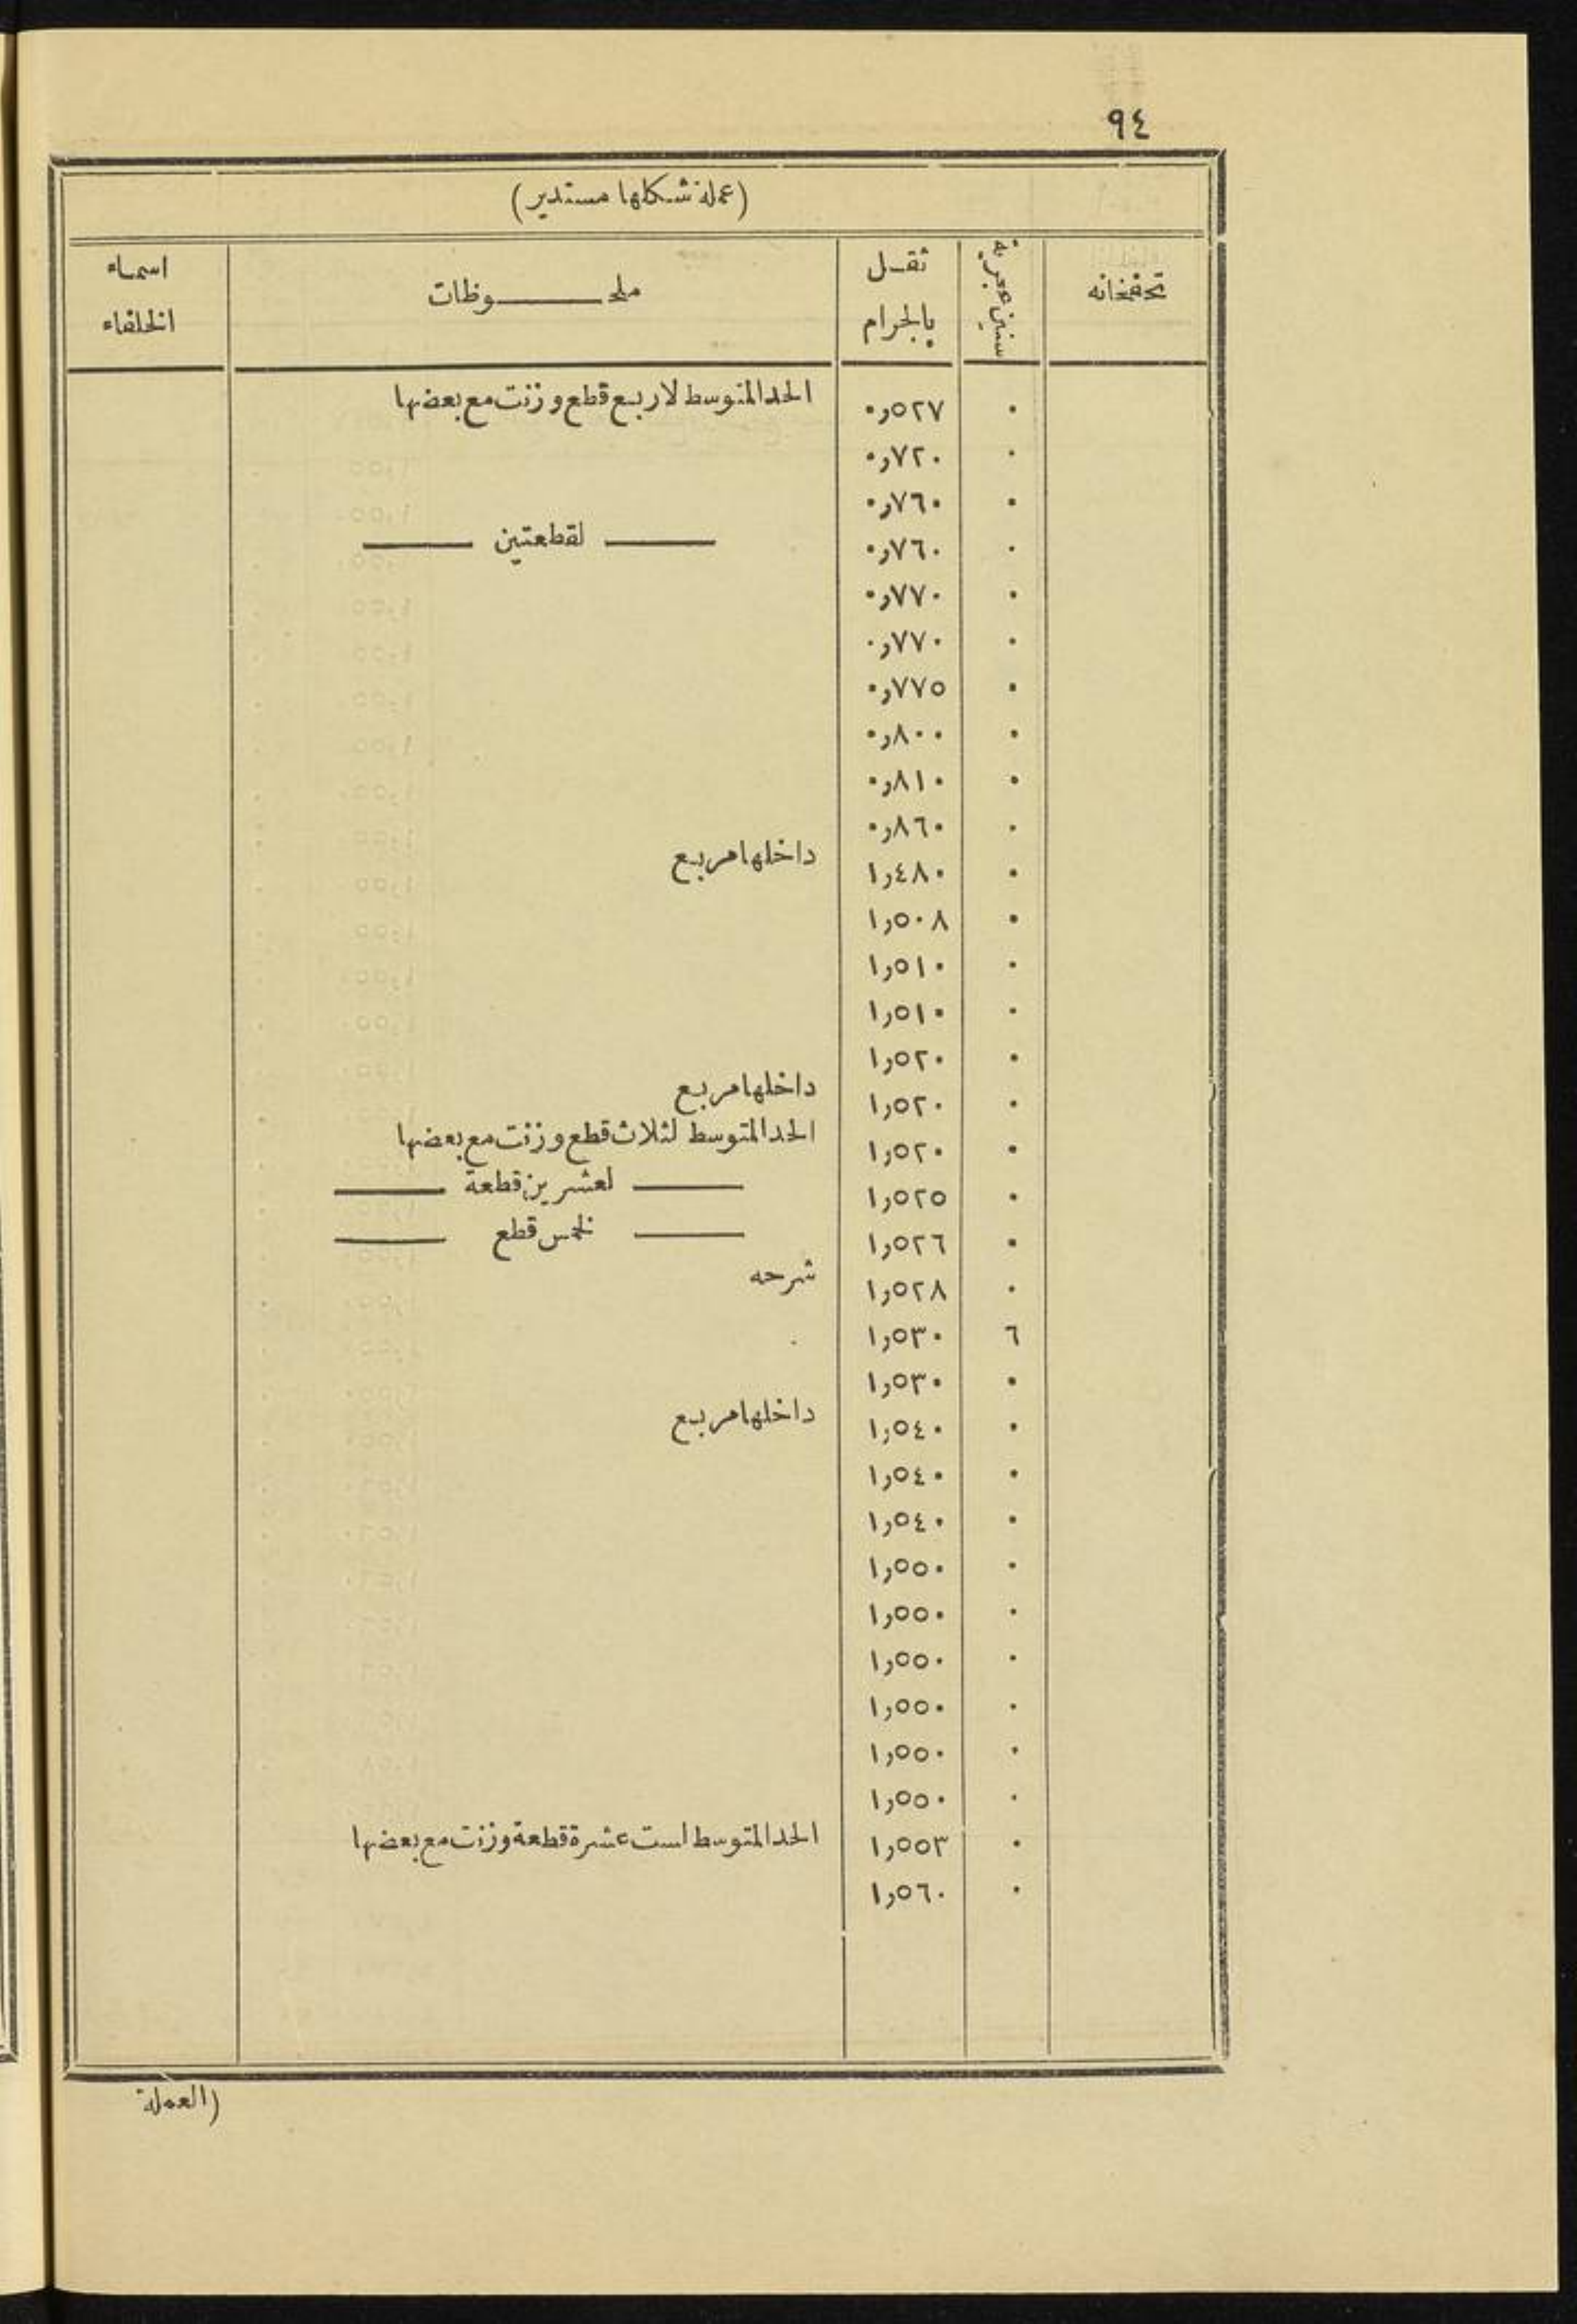 ٩٤
(عملة شكلها مستدير)
تحفخانه | سنين هجرية | ثقل بالجرام | ملحـــوظات | اسماء الخلفاء
٠ | ٠٫٥٢٧ | الحد المتوسط لاربع قطع وزنت مع بعضها
٠ | ٠٫٧٢٠
٠ | ٠٫٧٦٠
٠ | ٠٫٧٦٠ | —— لقطعتين ——
٠ | ٠٫٧٧٠
٠ | ٠٫٧٧٠
٠ | ٠٫٧٧٥
٠ | ٠٫٨٠٠
٠ | ٠٫٨١٠
٠ | ٠٫٨٦٠
٠ | ١٫٤٨٠ | داخلها مربع
٠ | ١٫٥٠٨
٠ | ١٫٥١٠
٠ | ١٫٥١٠
٠ | ١٫٥٢٠
٠ | ١٫٥٢٠ | داخلها مربع
٠ | ١٫٥٢٠ | الحد المتوسط لثلاث قطع وزنت مع بعضها
٠ | ١٫٥٢٥ | —— لعشرين قطعة ——
٠ | ١٫٥٢٦ | —— لخمس قطع ——
٠ | ١٫٥٢٨ | شرحه
٦ | ١٫٥٣٠
٠ | ١٫٥٣٠
٠ | ١٫٥٤٠ | داخلها مربع
٠ | ١٫٥٤٠
٠ | ١٫٥٤٠
٠ | ١٫٥٥٠
٠ | ١٫٥٥٠
٠ | ١٫٥٥٠
٠ | ١٫٥٥٠
٠ | ١٫٥٥٠
٠ | ١٫٥٥٠
٠ | ١٫٥٥٣ | الحد المتوسط لست عشرة قطعة وزنت مع بعضها
٠ | ١٫٥٦٠
(العملة